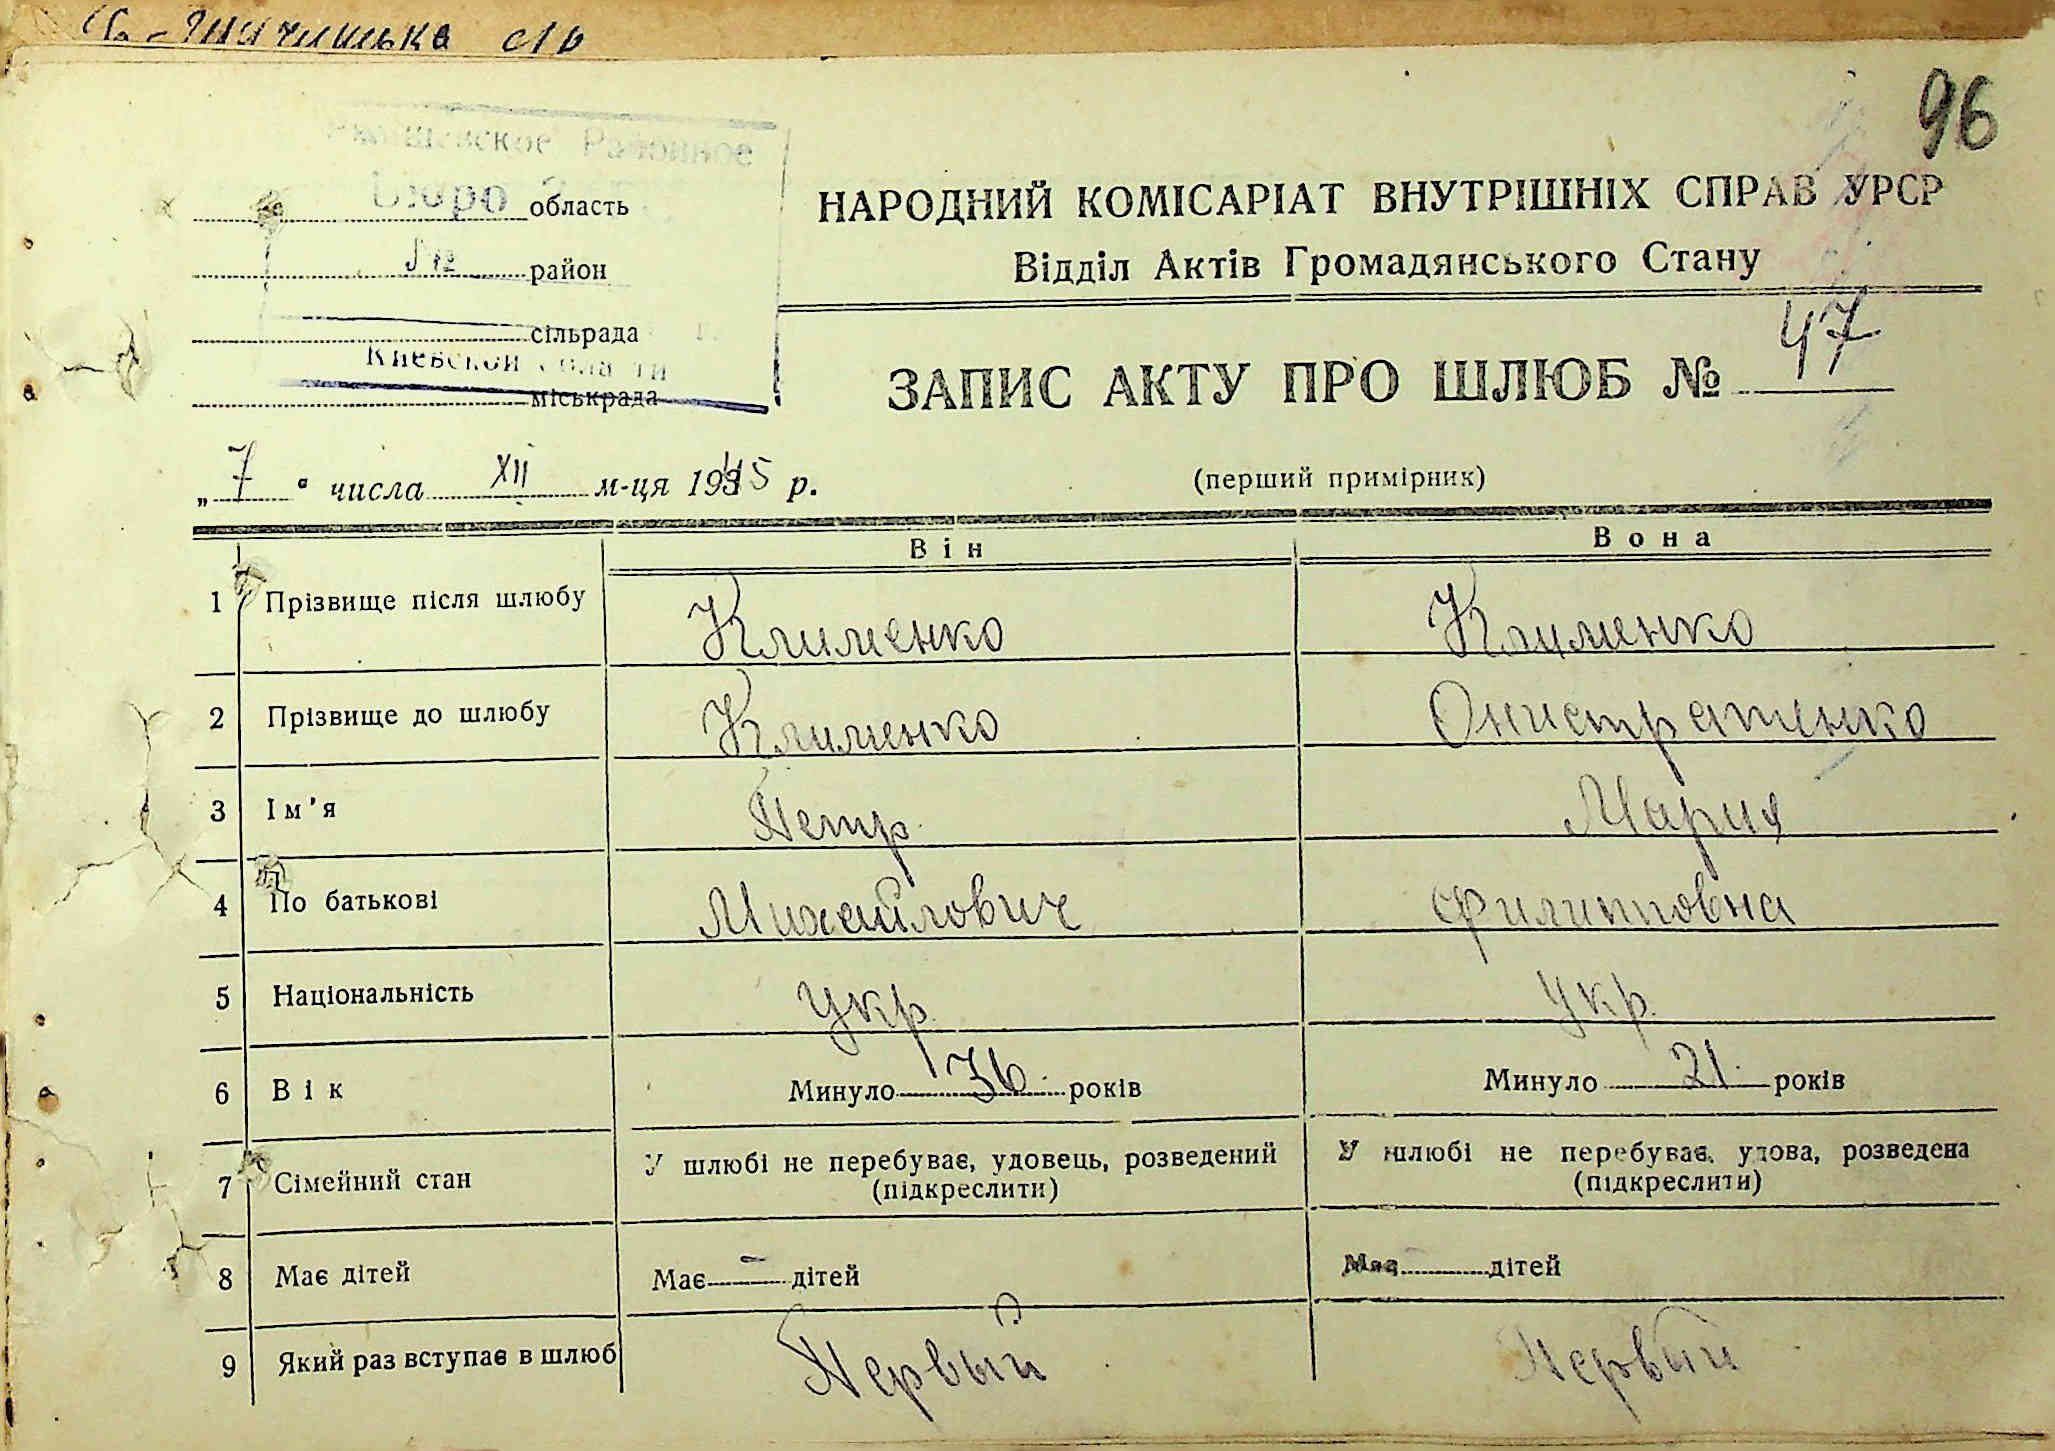 96
Районное
Бюро
область
район
сільрада
Киевской области
міськрада
НАРОДНИЙ КОМІСАРІАТ ВНУТРІШНІХ СПРАВ УРСР
Відділ Актів Громадянського Стану
ЗАПИС АКТУ ПРО ШЛЮБ № 47
„ 7 “ числа XII м-ця 1945 р.
(перший примірник)
Він Вона
1 Прізвище після шлюбу Клименко Клименко
2 Прізвище до шлюбу Клименко Онистратенко
3 Ім'я Петр Мария
4 По батькові Михайлович Филипповна
5 Національність Укр. Укр.
6 Вік Минуло 36 років Минуло 21 років
7 Сімейний стан У шлюбі не перебуває, удовець, розведений (підкреслити) У шлюбі не перебуває, удова, розведена (підкреслити)
8 Має дітей Має - дітей Має дітей
9 Який раз вступає в шлюб Первый Первый